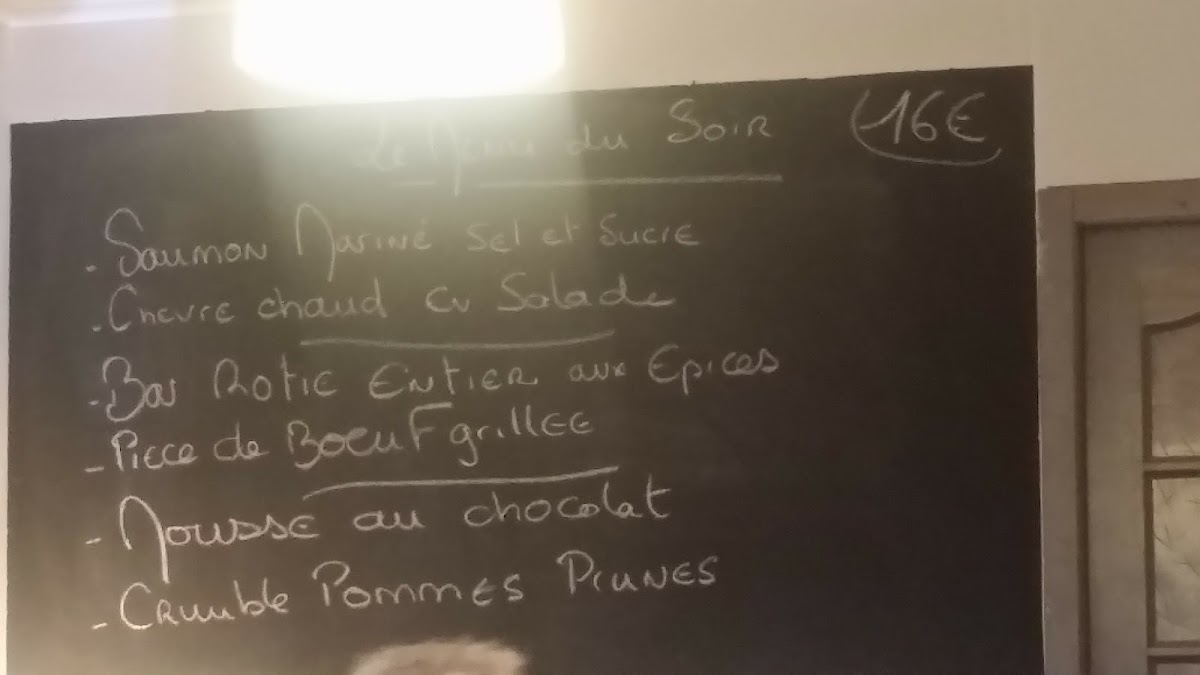 Le Menu du Soir 16€
- Saumon Mariné Sel et Sucre
- Chevre chaud en Salade
- Bar Rotie Entier aux Epices
- Piece de Boeuf grillee
- Mousse au chocolat
- Crumble Pommes Prunes